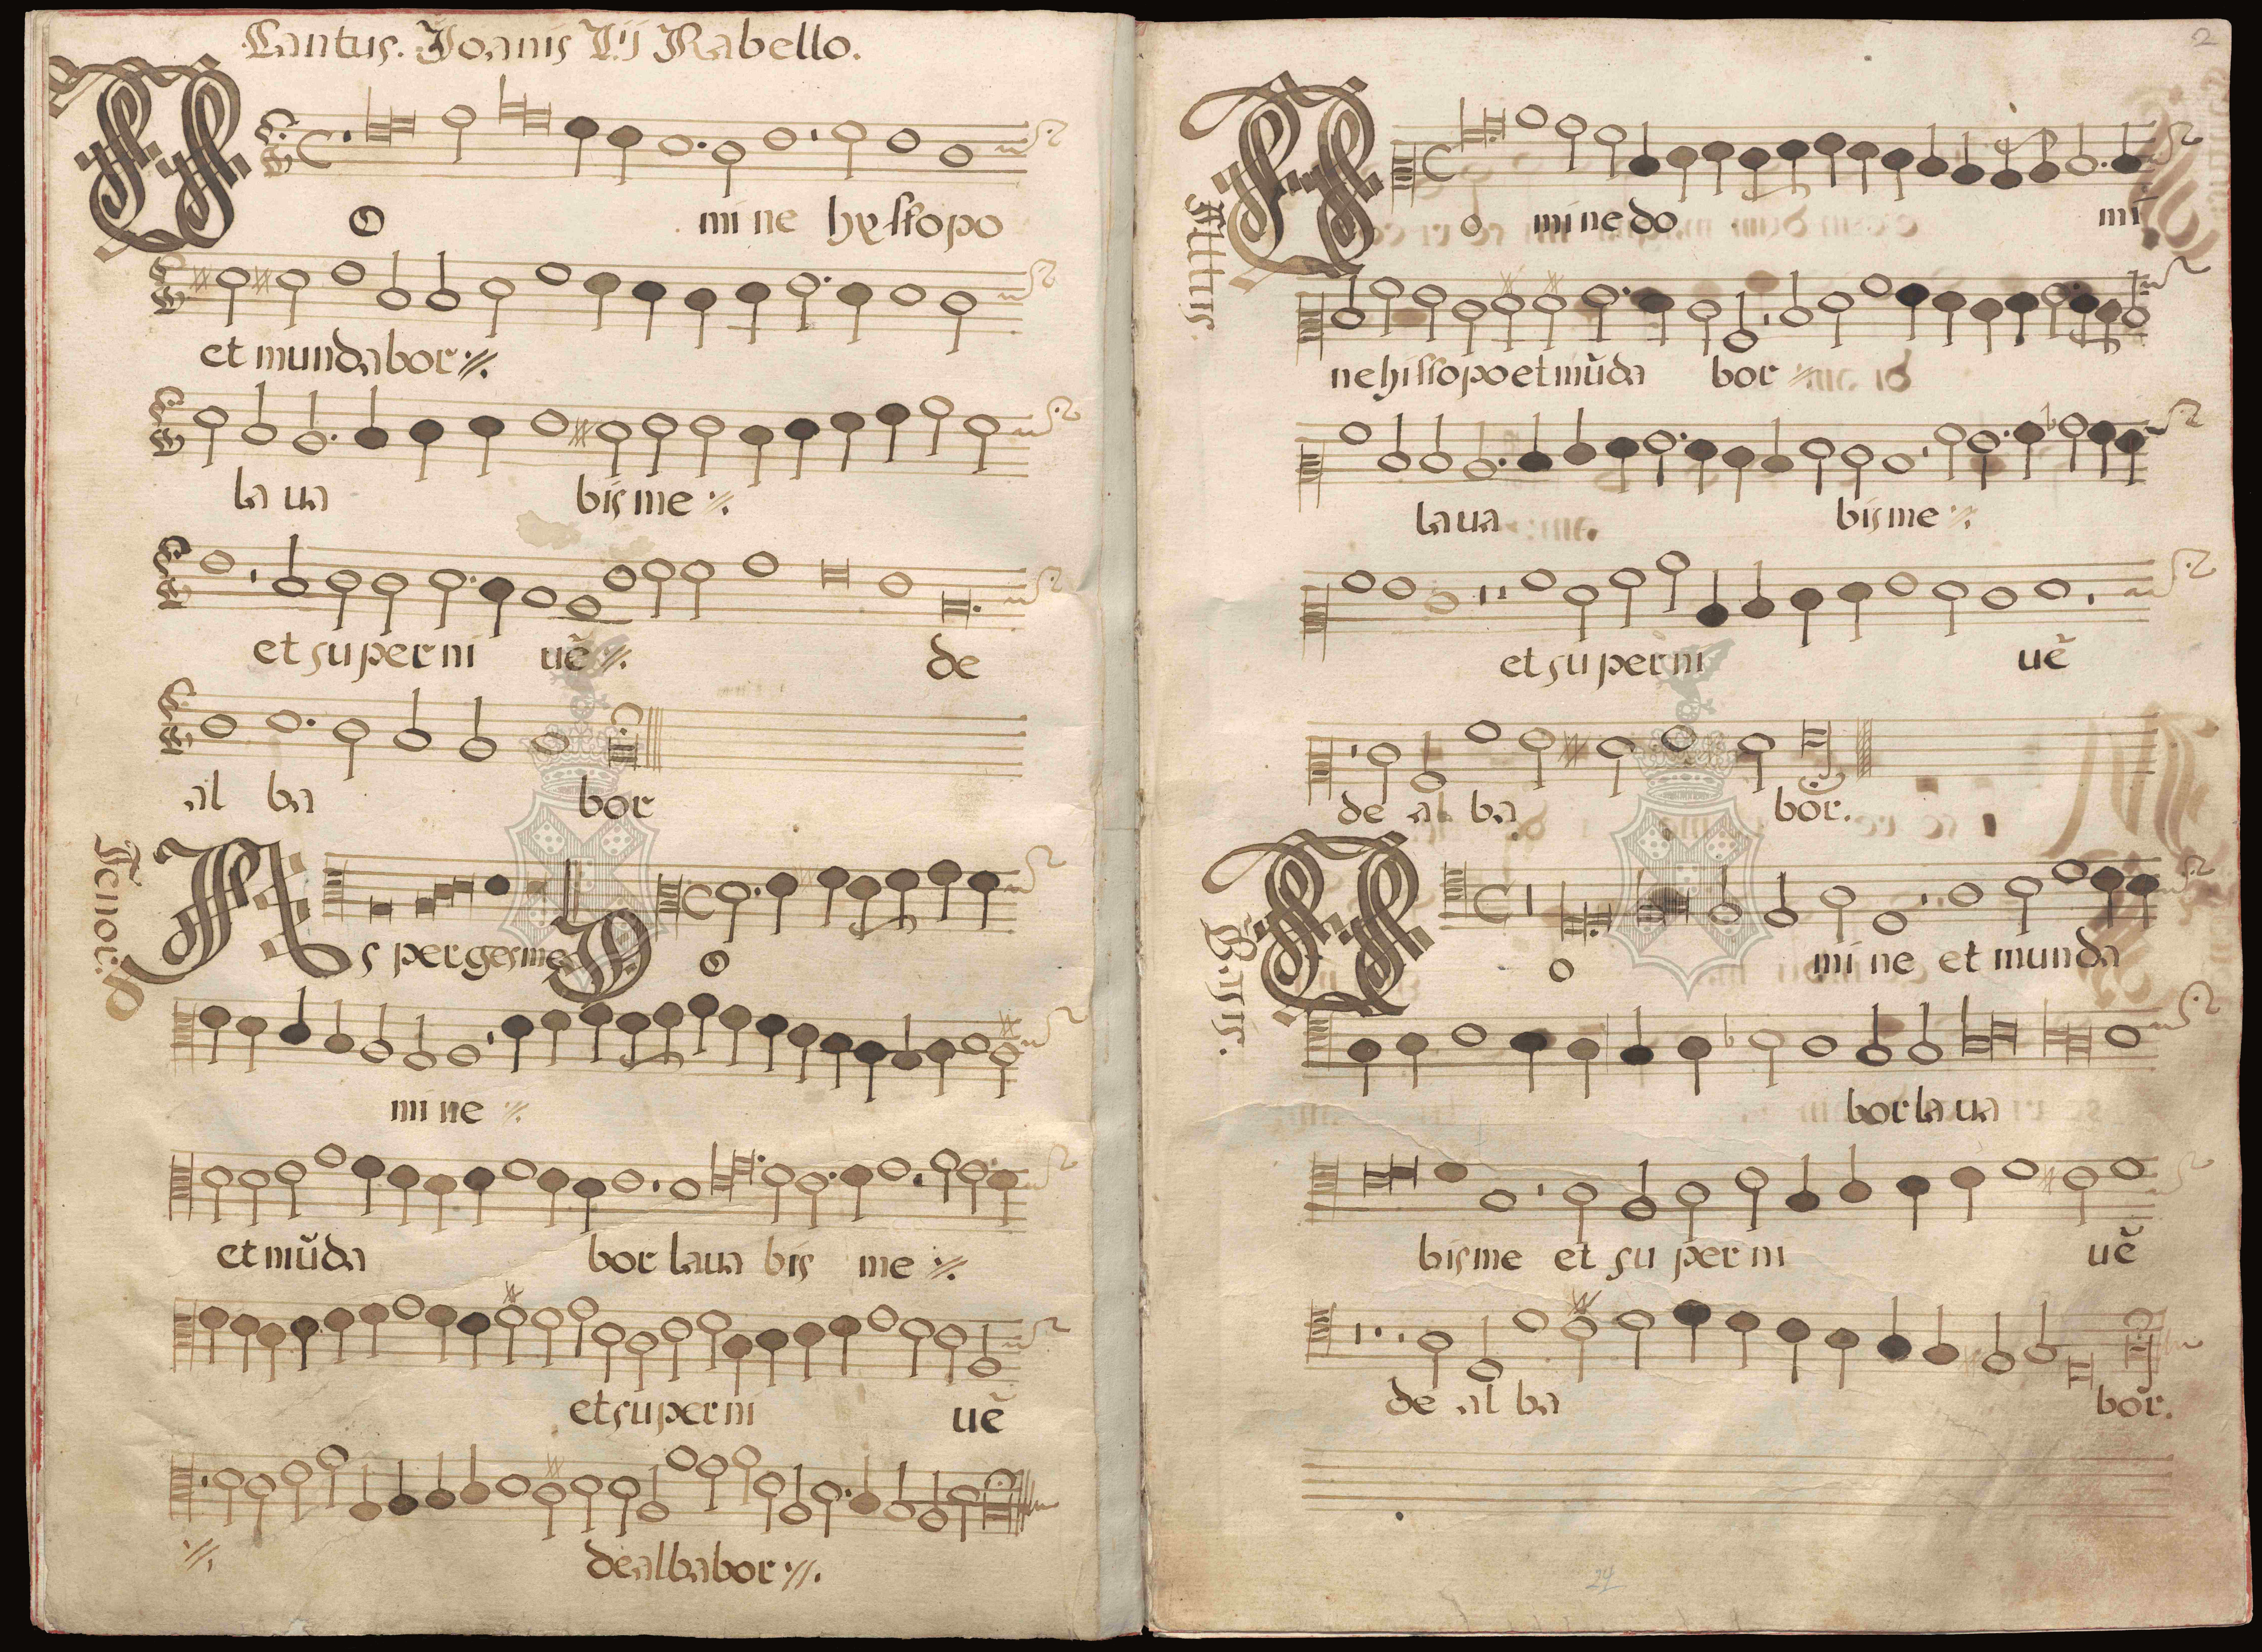 Cantus. Joanis L'j Rabello.
D
o mi ne hyssopo
et mundabor ://.
laua bis me ://.
et super ni uẽ ://. de
al ba bor
Tenor.
As perges me D o
mi ne ://.
et mũda bor laua bis me ://.
et super ni uẽ
://. dealbabor ://.
2
Altus.
D o mi ne do mi
ne hissopo et mũda bor ://.
laua bis me ://.
et su per ni uẽ
de al ba bor.
Bassus.
D o mi ne et munda
bor laua
bis me et su per ni uẽ
de al ba bor.